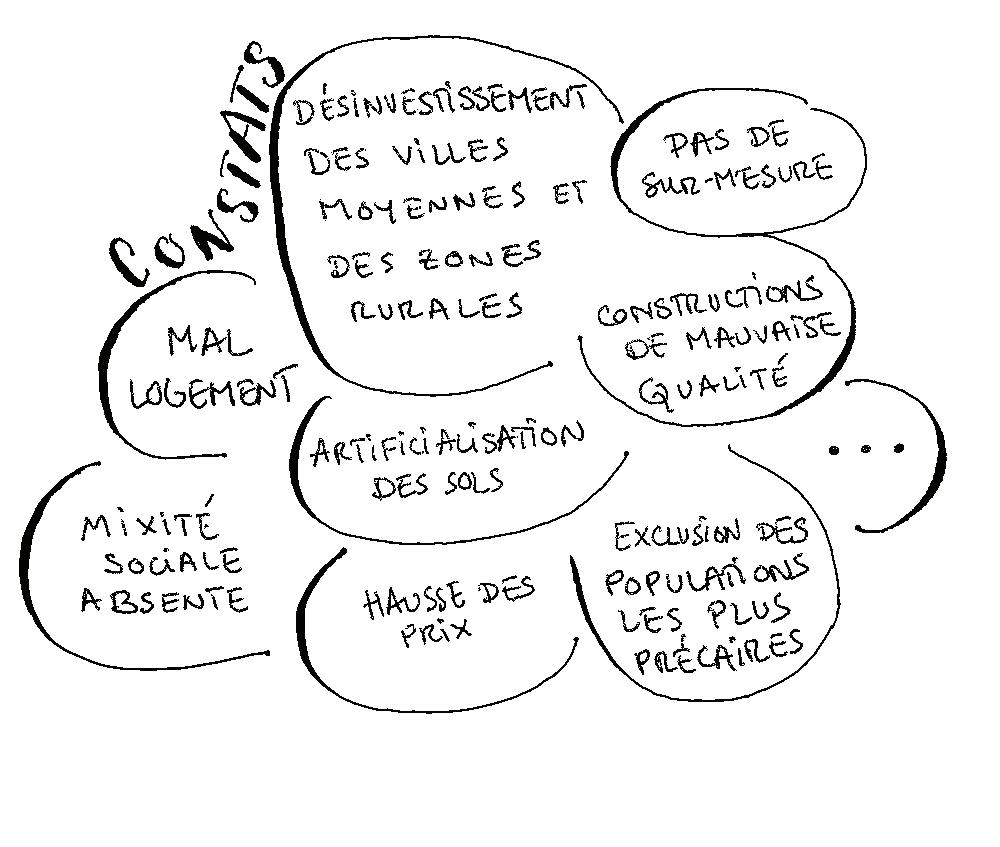 CONSTATS
DÉSINVESTISSEMENT
DES VILLES
MOYENNES ET
DES ZONES
RURALES
PAS DE
SUR-MESURE
MAL
LOGEMENT
CONSTRUCTIONS
DE MAUVAISE
QUALITÉ
ARTIFICIALISATION
DES SOLS
...
MIXITÉ
SOCIALE
ABSENTE
HAUSSE DES
PRIX
EXCLUSION DES
POPULATIONS
LES PLUS
PRÉCAIRES